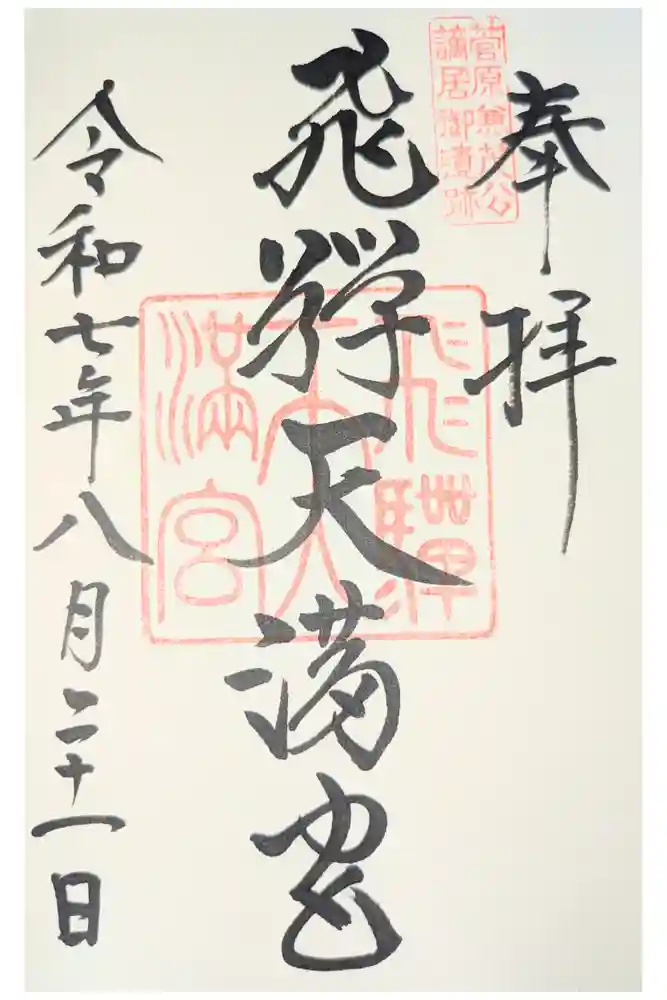 奉拝
菅原兼茂公
謫居御遺跡
飛騨天満宮
飛騨
天
満宮
令和七年八月二十一日